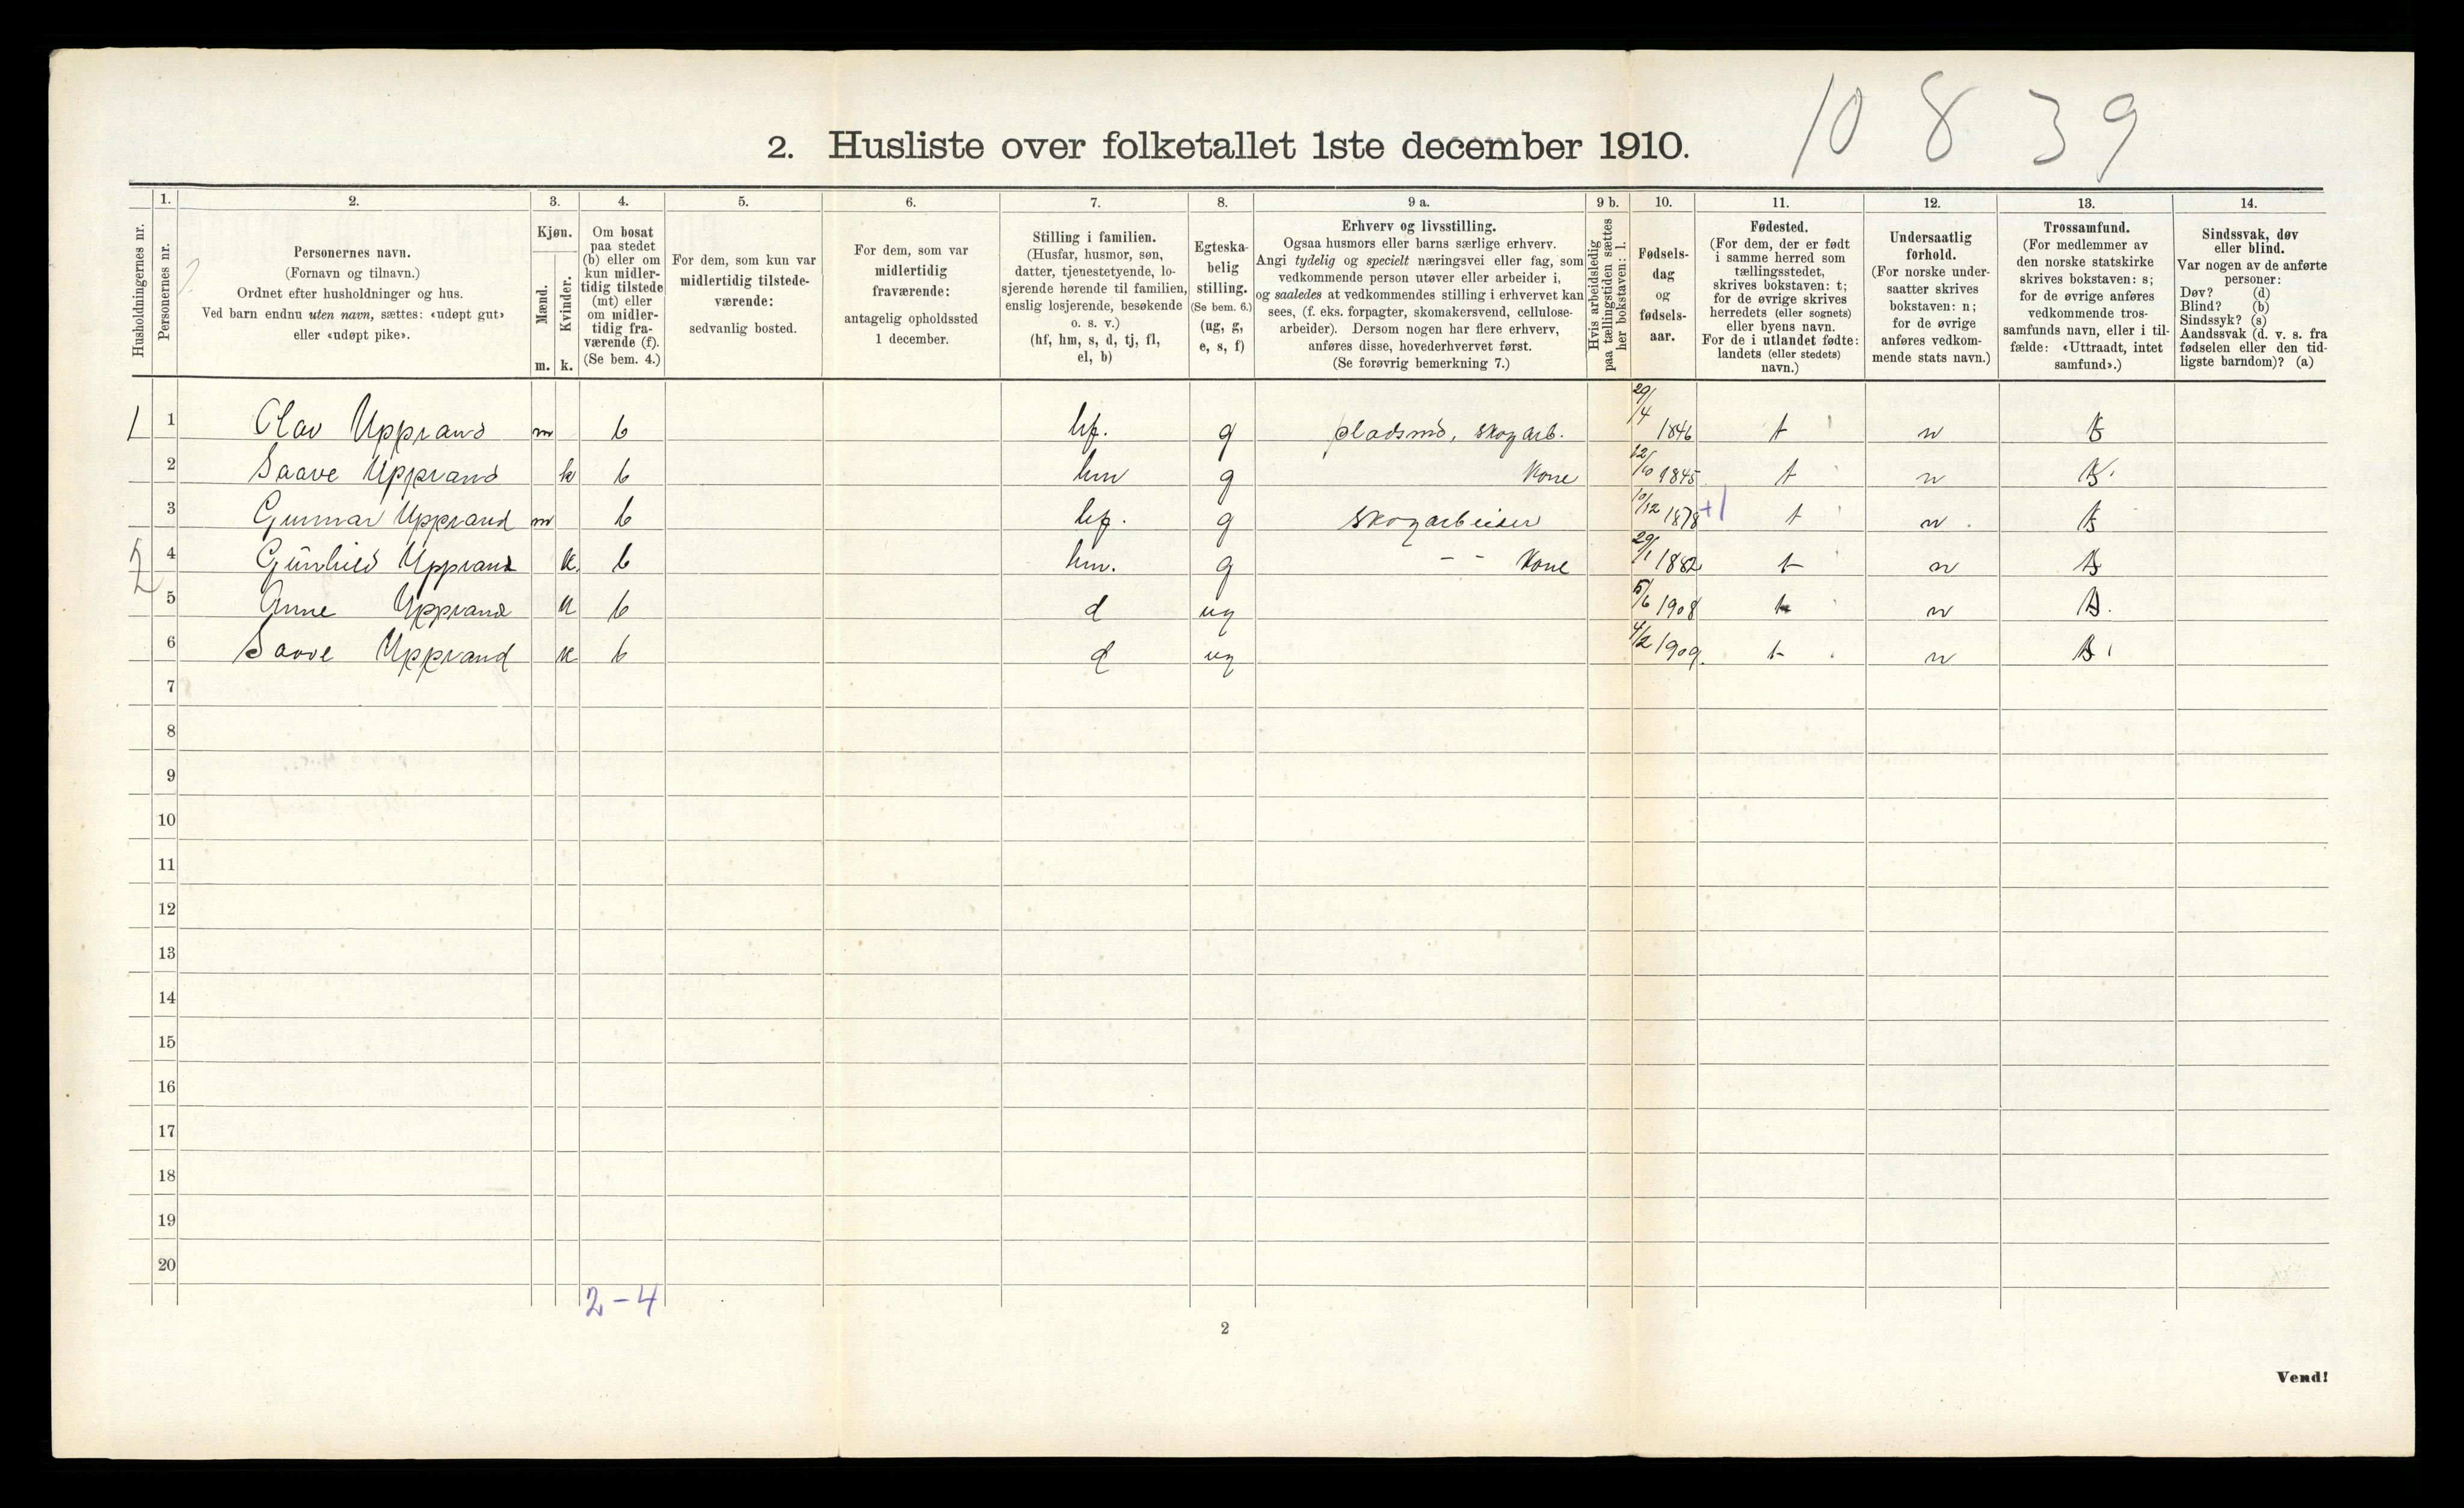 10 8 39
2. Husliste over folketallet 1ste december 1910.
Husholdningernes nr.
1.
Personernes nr.
2.
Personernes navn.
(Fornavn og tilnavn.)
Ordnet efter husholdninger og hus.
Ved barn endnu uten navn, sættes: «udøpt gut»
eller «udøpt pike».
3.
Kjøn.
Mænd.
Kvinder.
m. k.
4.
Om bosat
paa stedet
(b) eller om
kun midler-
tidig tilstede
(mt) eller
om midler-
tidig fra-
værende (f).
(Se bem. 4.)
5.
For dem, som kun var
midlertidig tilstede-
værende:
sedvanlig bosted.
6.
For dem, som var
midlertidig
fraværende:
antagelig opholdssted
1 december.
7.
Stilling i familien.
(Husfar, husmor, søn,
datter, tjenestetyende, lo-
sjerende hørende til familien,
enslig losjerende, besøkende
o. s. v.)
(hf, hm, s, d, tj, fl,
el, b)
8.
Egteska-
belig
stilling.
(Se bem. 6.)
(ug, g,
e, s, f)
9 a.
Erhverv og livsstilling.
Ogsaa husmors eller barns særlige erhverv.
Angi tydelig og specielt næringsvei eller fag, som
vedkommende person utøver eller arbeider i,
og saaledes at vedkommendes stilling i erhvervet kan
sees, (f. eks. forpagter, skomakersvend, cellulose-
arbeider). Dersom nogen har flere erhverv,
anføres disse, hovederhvervet først.
(Se forøvrig bemerkning 7.)
9 b.
Hvis arbeidsledig
paa tællingstiden sættes
her bokstaven: l.
10.
Fødsels-
dag
og
fødsels-
aar.
11.
Fødested.
(For dem, der er født
i samme herred som
tællingsstedet,
skrives bokstaven: t;
for de øvrige skrives
herredets (eller sognets)
eller byens navn.
For de i utlandet fødte:
landets (eller stedets)
navn.)
12.
Undersaatlig
forhold.
(For norske under-
saatter skrives
bokstaven: n;
for de øvrige
anføres vedkom-
mende stats navn.)
13.
Trossamfund.
(For medlemmer av
den norske statskirke
skrives bokstaven: s;
for de øvrige anføres
vedkommende tros-
samfunds navn, eller i til-
fælde: «Uttraadt, intet
samfund».)
14.
Sindssvak, døv
eller blind.
Var nogen av de anførte
personer:
Døv? (d)
Blind? (b)
Sindssyk? (s)
Aandssvak (d. v. s. fra
fødselen eller den tid-
ligste barndom)? (a)
1 1 Olav Upprand m b hf. g pladsmd, skogarb. 29/4 1846 t n s
2 Saave Upprand k b hm g Kone 12/10 1845 t n s
3 Gunnar Upprand m b hf. g Skogarbeider 10/12 1878 +1 t n s
2 4 Gunhild Upprand k b hm. g - - Kone 29/1 1882 t n s
5 Anne Upprand k b d ug 5/6 1908 t n s
6 Saave Upprand k b d ug 4/2 1909 t n s
7
8
9
10
11
12
13
14
15
16
17
18
19
20
2-4
2
Vend!